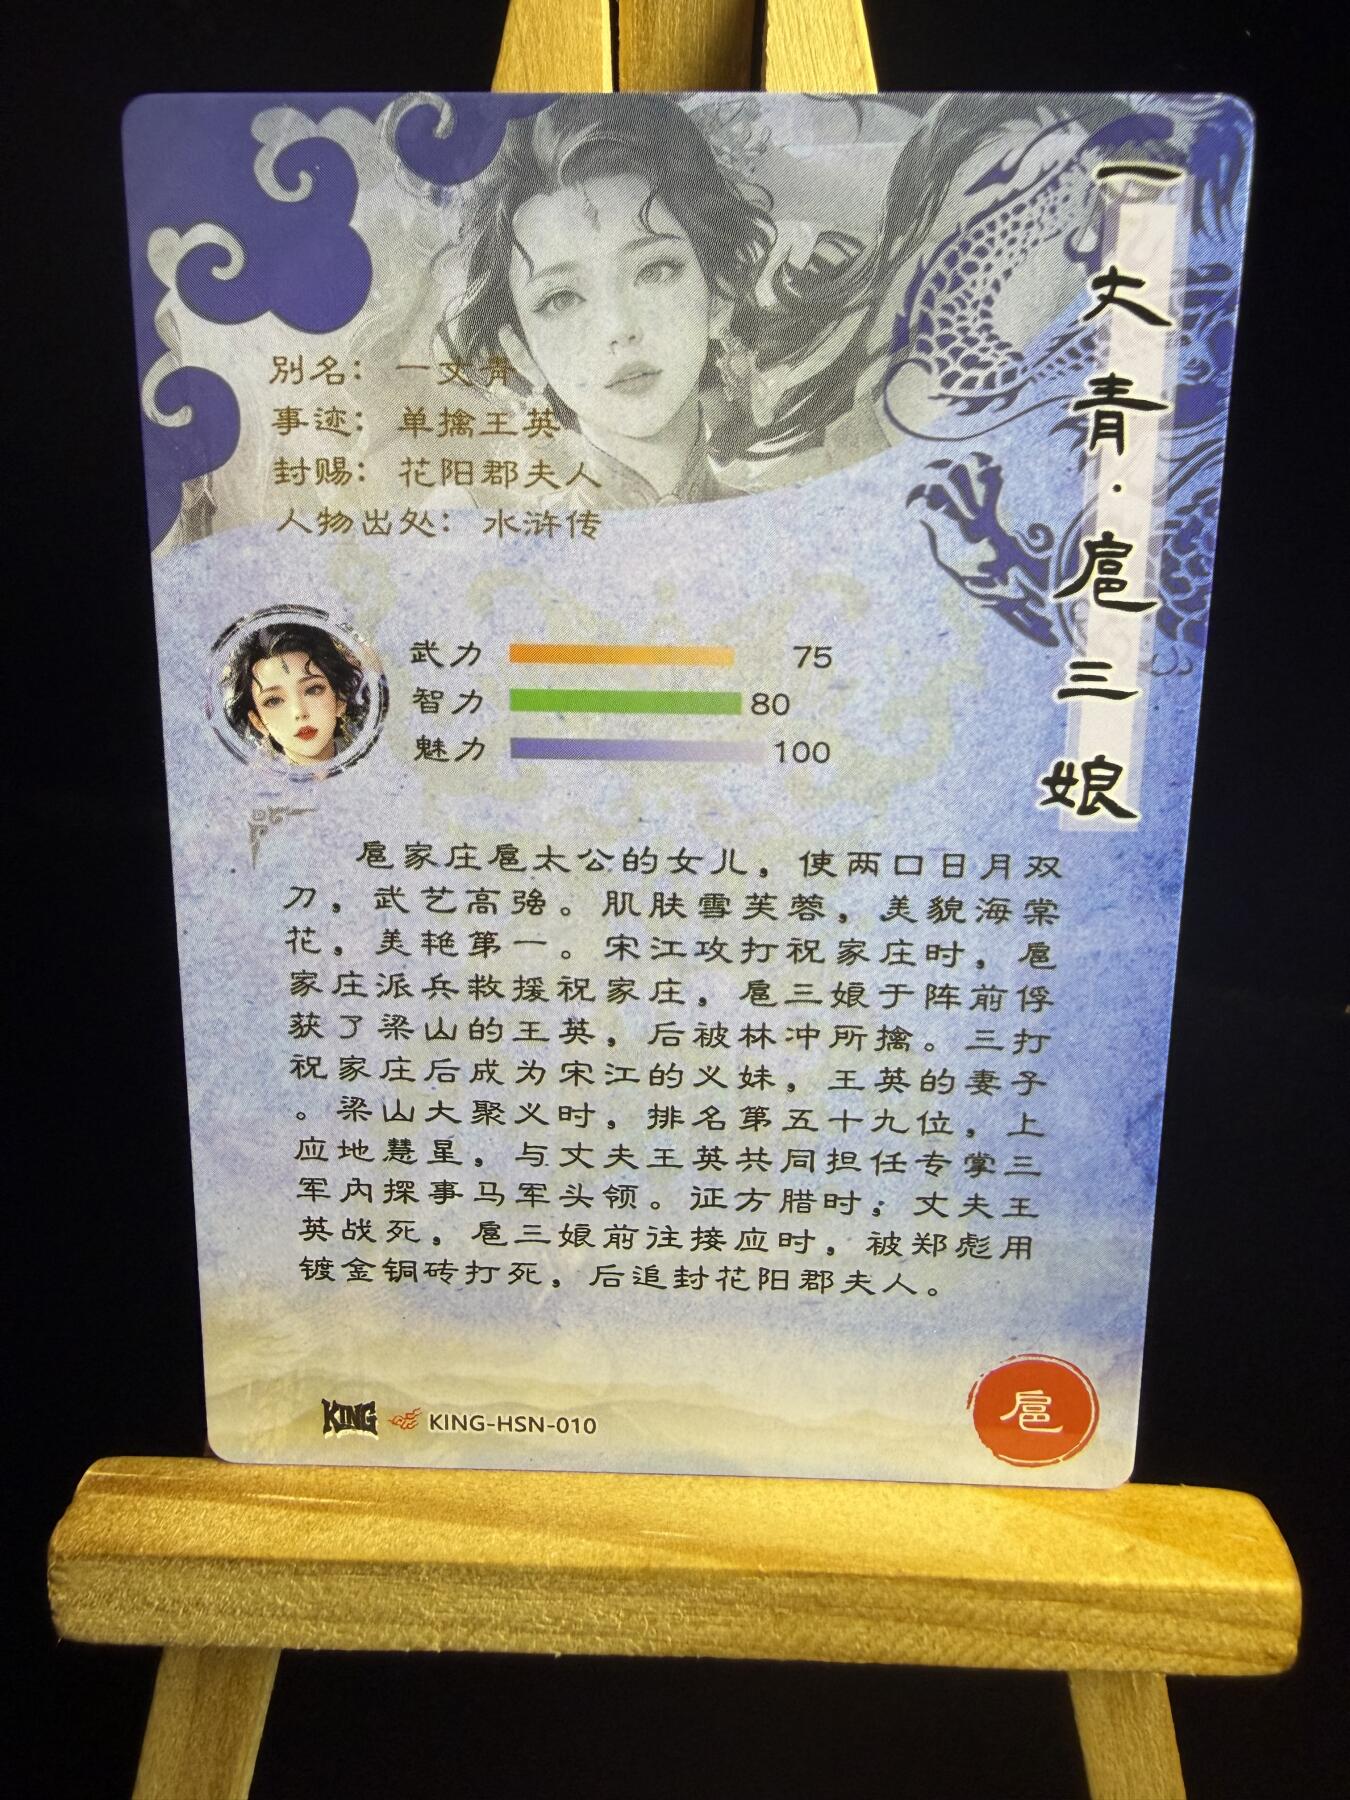 一丈青·扈三娘
别名：一丈青
事迹：单擒王英
封赐：花阳郡夫人
人物出处：水浒传
武力 75
智力 80
魅力 100
扈家庄扈太公的女儿，使两口日月双
刀，武艺高强。肌肤雪芙蓉，美貌海棠
花，美艳第一。宋江攻打祝家庄时，扈
家庄派兵救援祝家庄，扈三娘于阵前俘
获了梁山的王英，后被林冲所擒。三打
祝家庄后成为宋江的义妹，王英的妻子
。梁山大聚义时，排名第五十九位，上
应地慧星，与丈夫王英共同担任专掌三
军内探事马军头领。征方腊时；丈夫王
英战死，扈三娘前往接应时，被郑彪用
镀金铜砖打死，后追封花阳郡夫人。
KING KING-HSN-010
扈